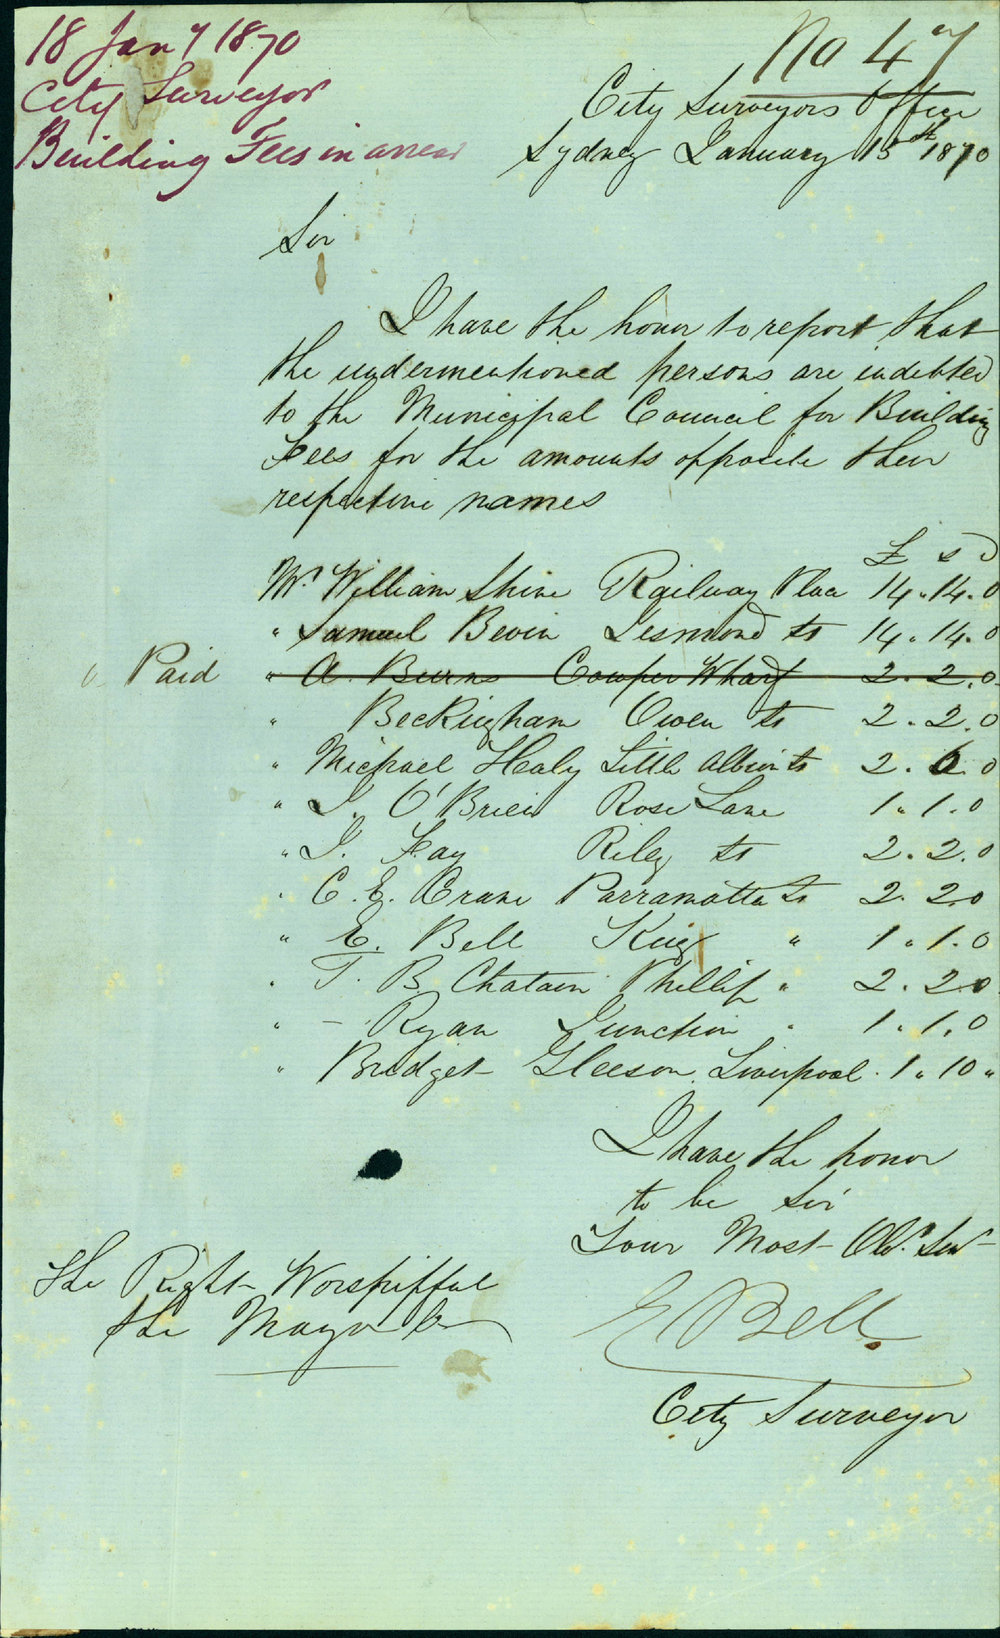 18 Jany 1870
City Surveyor
Building Fees in arrear
No 47
City Surveyors Office
Sydney January 15th 1870
Sir
I have the honor to report that
the undermentioned persons are indebted
to the Municipal Council for Building
Fees for the amounts opposite their
respective names
£ s d
Mr. William Shine Railway Place 14.14.0
" Samuel Bevin Desmond St 14.14.0
Paid " A. Burns Cowper Wharf 2.2.0
" Beckingham Owen St 2.2.0
" Michael Healy Little Albion St 2.6.0
" J. O'Brien Rose Lane 1.1.0
" J. Fay Riley St 2.2.0
" C. E. Crane Parramatta St 2.2.0
" E. Bell King " 1.1.0
" T. B. Chatain Phillip " 2.2.0
" - Ryan Junction " 1.1.0
" Bridget Gleeson Liverpool " 1"10"
I have the honor
to be Sir
Your Most Obt. Servt
E Bell
City Surveyor
The Right Worshipful
the Mayor &c